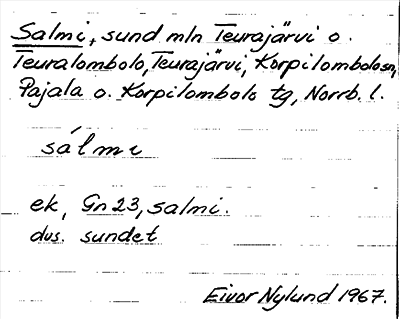 Salmi, sund mln Teurajärvi o.
Teuralombolo, Teurajärvi, Korpilombolo sn,
Pajala o. Korpilombolo tg, Norrb. l.
sálmi
ek, Gn 23, salmi.
dvs. sundet
Eivor Nylund 1967.